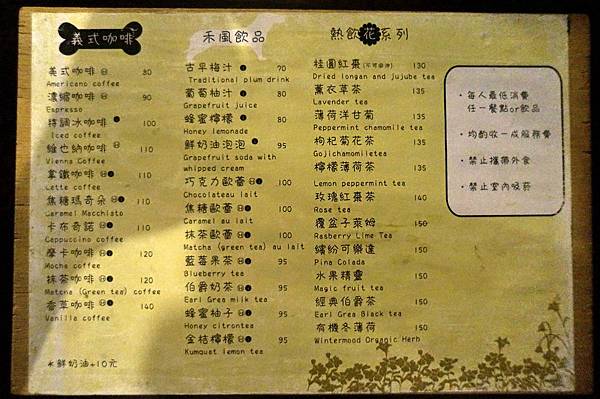 義式咖啡
美式咖啡 80
Americano coffee
濃縮咖啡 90
Espresso
特調冰咖啡 100
Iced coffee
維也納咖啡 110
Vienna Coffee
拿鐵咖啡 110
Latte coffee
焦糖瑪奇朵 110
Caramel Macchiato
卡布奇諾 110
Cappuccino coffee
摩卡咖啡 120
Mocha coffee
抹茶咖啡 120
Matcha (Green tea) coffee
香草咖啡 140
Vanilla coffee
*鮮奶油+10元
禾風飲品
古早梅汁 70
Traditional plum drink
葡萄柚汁 80
Grapefruit juice
蜂蜜檸檬 80
Honey lemonade
鮮奶油泡泡 95
Grapefruit soda with
whipped cream
巧克力歐蕾 100
Chocolateau lait
焦糖歐蕾 100
Caramel au lait
抹茶歐蕾 100
Matcha (green tea) au lait
藍莓果茶 95
Blueberry tea
伯爵奶茶 95
Earl Grea milk tea
蜂蜜柚子 95
Honey citrontea
金桔檸檬 95
Kumquat lemon tea
熱飲花系列
桂圓紅棗(不可回沖) 130
Dried longan and jujube tea
薰衣草茶 135
Lavender tea
薄荷洋甘菊 135
Peppermint chamomile tea
枸杞菊花茶 135
Gojichamomiletea
檸檬薄荷茶 135
Lemon peppermint tea
玫瑰紅棗茶 140
Rose tea
覆盆子萊姆 150
Rasberry Lime Tea
繽紛可樂達 150
Pina Colada
水果精靈 150
Magic fruit tea
經典伯爵茶 150
Earl Grea Black tea
有機冬薄荷 150
Wintermood Organic Herb
·每人最低消費
任一餐點or飲品
·均酌收一成服務費
·禁止攜帶外食
·禁止室內吸菸